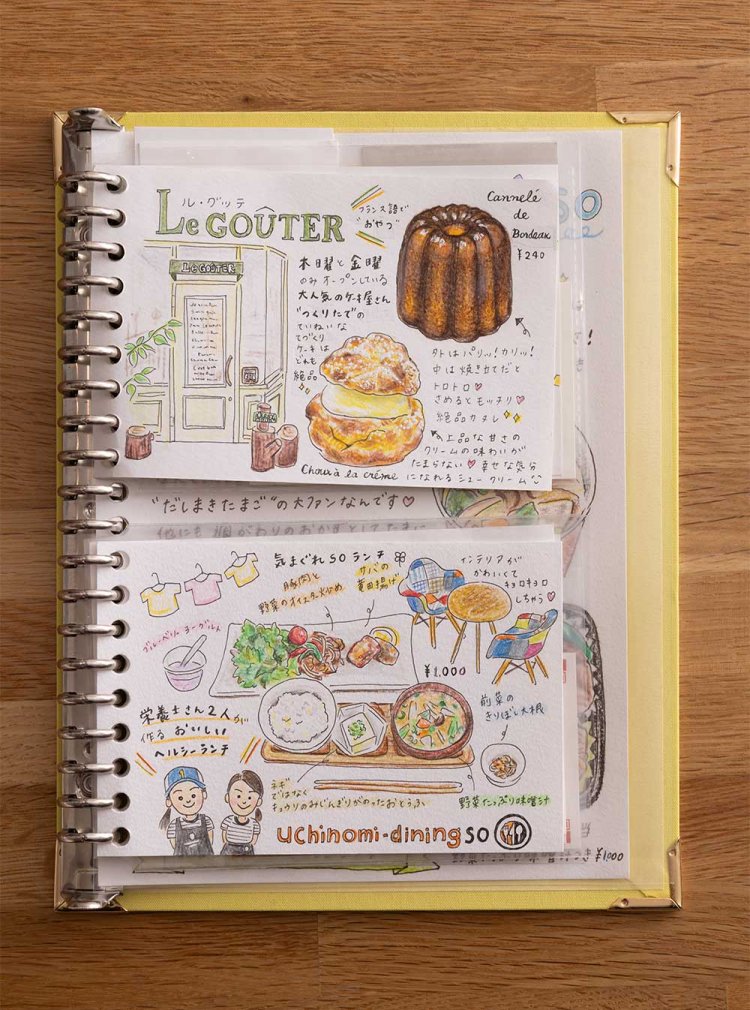 ル・グッテ
Le GOÛTER
フランス語で
"おやつ"
Cannelé
de
Bordeaux
¥240
Le GOÛTER
木曜と金曜
のみオープンしている
大人気のケーキ屋さん
"つくりたて"の
ていねいな
てづくり
ケーキは
どれも
絶品
外はパリッ!カリッ!
中は焼き立てだと
トロトロ
さめるとモッチリ
絶品カヌレ
上品な甘さの
クリームの味わいが
たまらない 幸せな気分
になれるシュークリーム
Choux à la crème
"だしまきたまご"の大ファンなんです
気まぐれSOランチ
豚肉と
野菜のオイスター炒め
サバの
竜田揚げ
インテリアが
かわいくて
キョロキョロ
しちゃう
ブルーベリーヨーグルト
¥1,000
前菜の
きりぼし大根
栄養士さん2人が
作るおいしい
ヘルシーランチ
ネギ
ではなく
キュウリのみじんぎりがのったおとうふ
野菜たっぷり味噌汁
uchinomi-dining SO
¥1,000